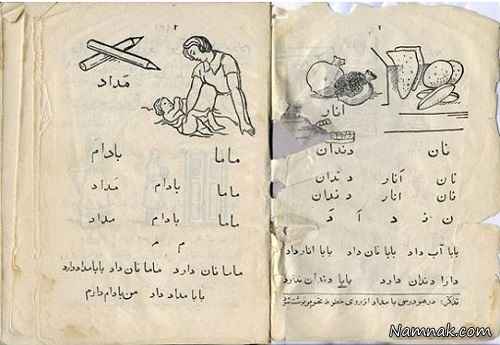 اَنار
نان دندان
نان اَنار دندان
نان انار دندان
ن نـ د اَ ر
بابا آب داد بابا نان داد بابا انار داد
دارا دندان دارد بابا دندان ندارد
تذکر: در هر درس با مداد از روی خطوط
مَداد
ماما بادام
ماما بادام مَداد
ماما بادام مداد
م مـ
ماما نان دارد ماما نان داد بابا مداد دارد
بابا مداد داد من بادام دارم
Namnak.com